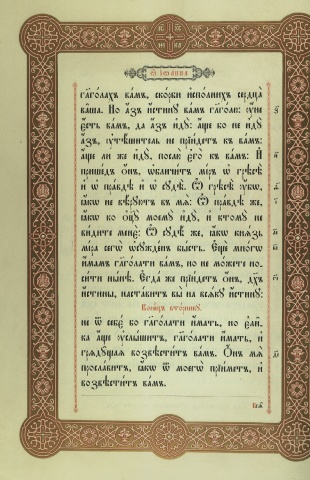 Ѿ іѡанна
гл҃голахъ вамъ, скорби исполнихъ сердца
ваша. Но а҆зъ и҆стинꙋ вамъ гл҃голю: ᲂу҆не
є҆сть вамъ, да а҆зъ и҆дꙋ: а҆ще бо не и҆дꙋ
а҆зъ, ᲂу҆тѣшитель не прїидетъ къ вамъ:
а҆ще ли же и҆дꙋ, послю є҆го къ вамъ: И҆
пришедъ ѻ҆нъ, ѡ҆бличитъ мїръ ѡ҆ грѣсѣ
и҆ ѡ҆ правдѣ и҆ ѡ҆ сꙋдѣ. Ѡ҆ грѣсѣ ᲂу҆бѡ,
ꙗ҆кѡ не вѣрꙋютъ въ мѧ: Ѡ҆ правдѣ же,
ꙗ҆кѡ ко ѻ҆ц҃ꙋ моемꙋ и҆дꙋ, и҆ ктомꙋ не
видите менє: Ѡ҆ сꙋдѣ же, ꙗ҆кѡ кнѧзь
мїра сегѡ ѡ҆сꙋжденъ бысть. Є҆ще многѡ
и҆мамъ гл҃голати вамъ, но не можете но-
сити нынѣ. Є҆гда же прїидетъ ѻ҆нъ, дх҃ъ
и҆стины, наставитъ вы на всѧкꙋ и҆стинꙋ:
Конецъ вторникꙋ.
не ѿ себє бо гл҃голати и҆мать, но є҆ли-
ка а҆ще ᲂу҆слышитъ, гл҃голати и҆мать, и҆
грѧдꙋщаѧ возвѣститъ вамъ. Ѻ҆нъ мѧ
прославитъ, ꙗ҆кѡ ѿ моегѡ прїиметъ, и҆
возвѣститъ вамъ.